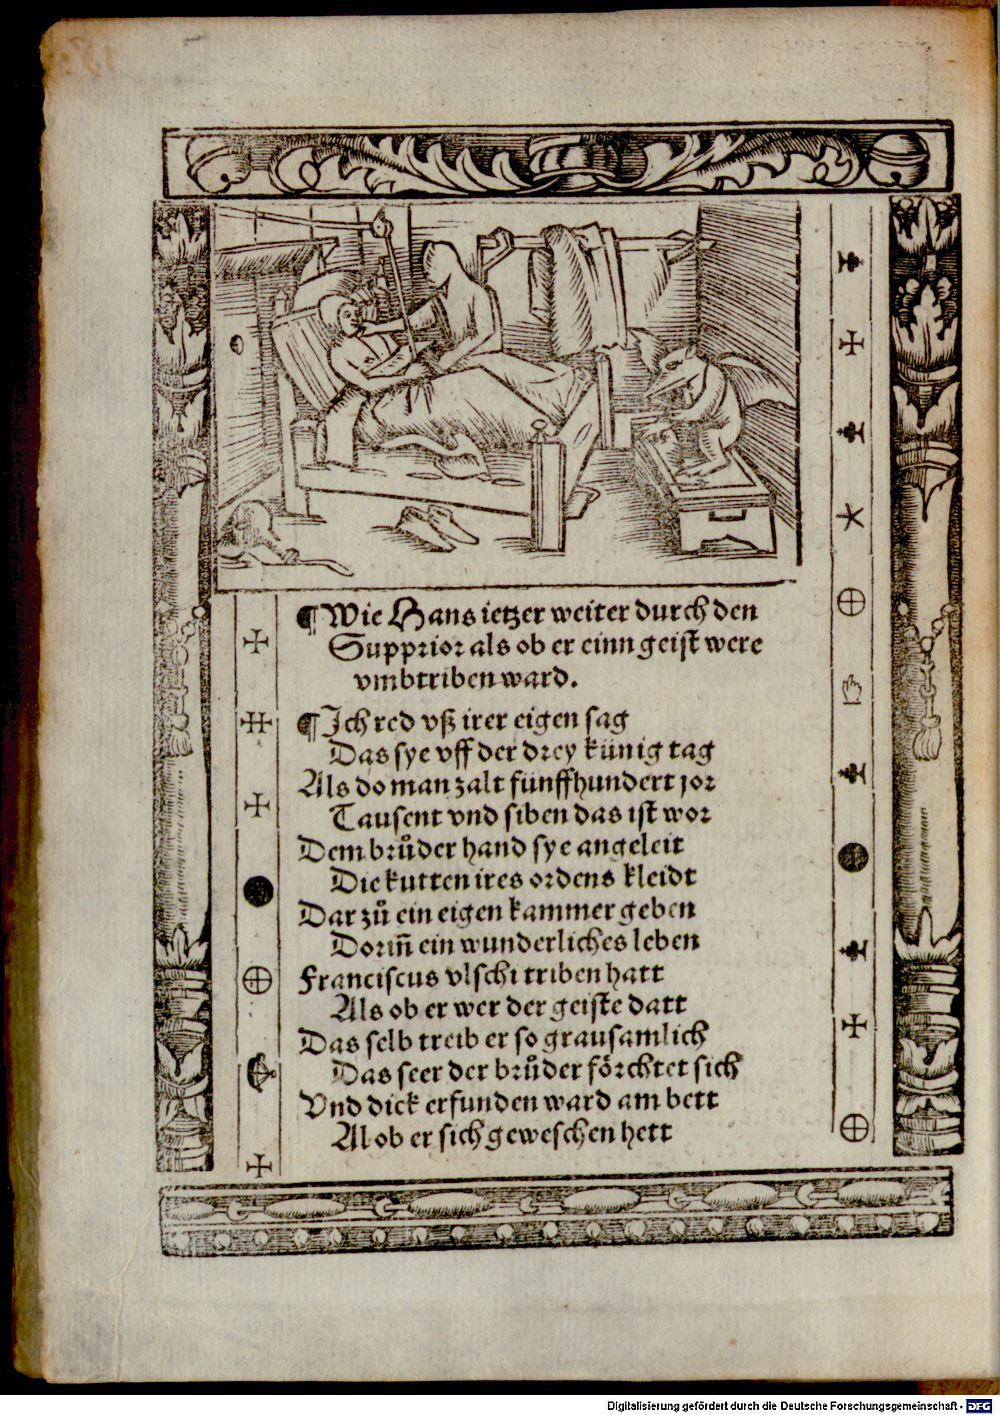 ¶Wie Hans ietzer weiter durch den
Supprior als ob er einn geist were
vmbtriben ward.
¶Jch red vß irer eigen sag
Das sye vff der drey künig tag
Als do man zalt fünffhundert jor
Tausent vnd siben das ist wor
Dem brůder hand sye angeleit
Die kutten ires ordens kleidt
Dar zů ein eigen kammer geben
Dorin̄ ein wunderliches leben
Franciscus vlschi triben hatt
Als ob er wer der geiste datt
Das selb treib er so grausamlich
Das seer der brůder förchtet sich
Vnd dick erfunden ward am bett
Al ob er sich geweschen hett
Digitalisierung gefördert durch die Deutsche Forschungsgemeinschaft - DFG